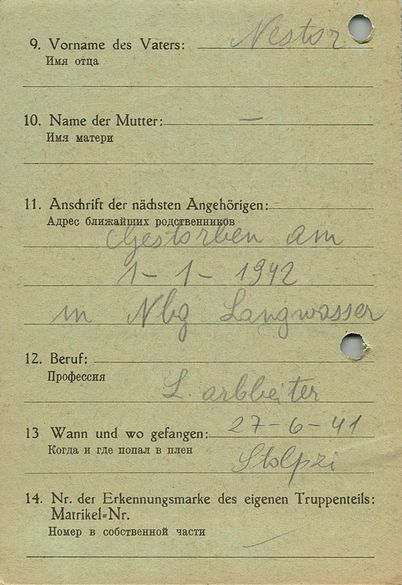 9. Vorname des Vaters: Nestor
Имя отца
10. Name der Mutter: —
Имя матери
11. Anschrift der nächsten Angehörigen:
Адрес ближайших родственников
Gestorben am
1 - 1 - 1942
in Nbg Langwasser
12. Beruf:
Профессия
L. arbbeiter
13 Wann und wo gefangen: 27-6-41
Когда и где попал в плен
Stolpzi
14. Nr. der Erkennungsmarke des eigenen Truppenteils:
Matrikel-Nr.
Номер в собственной части